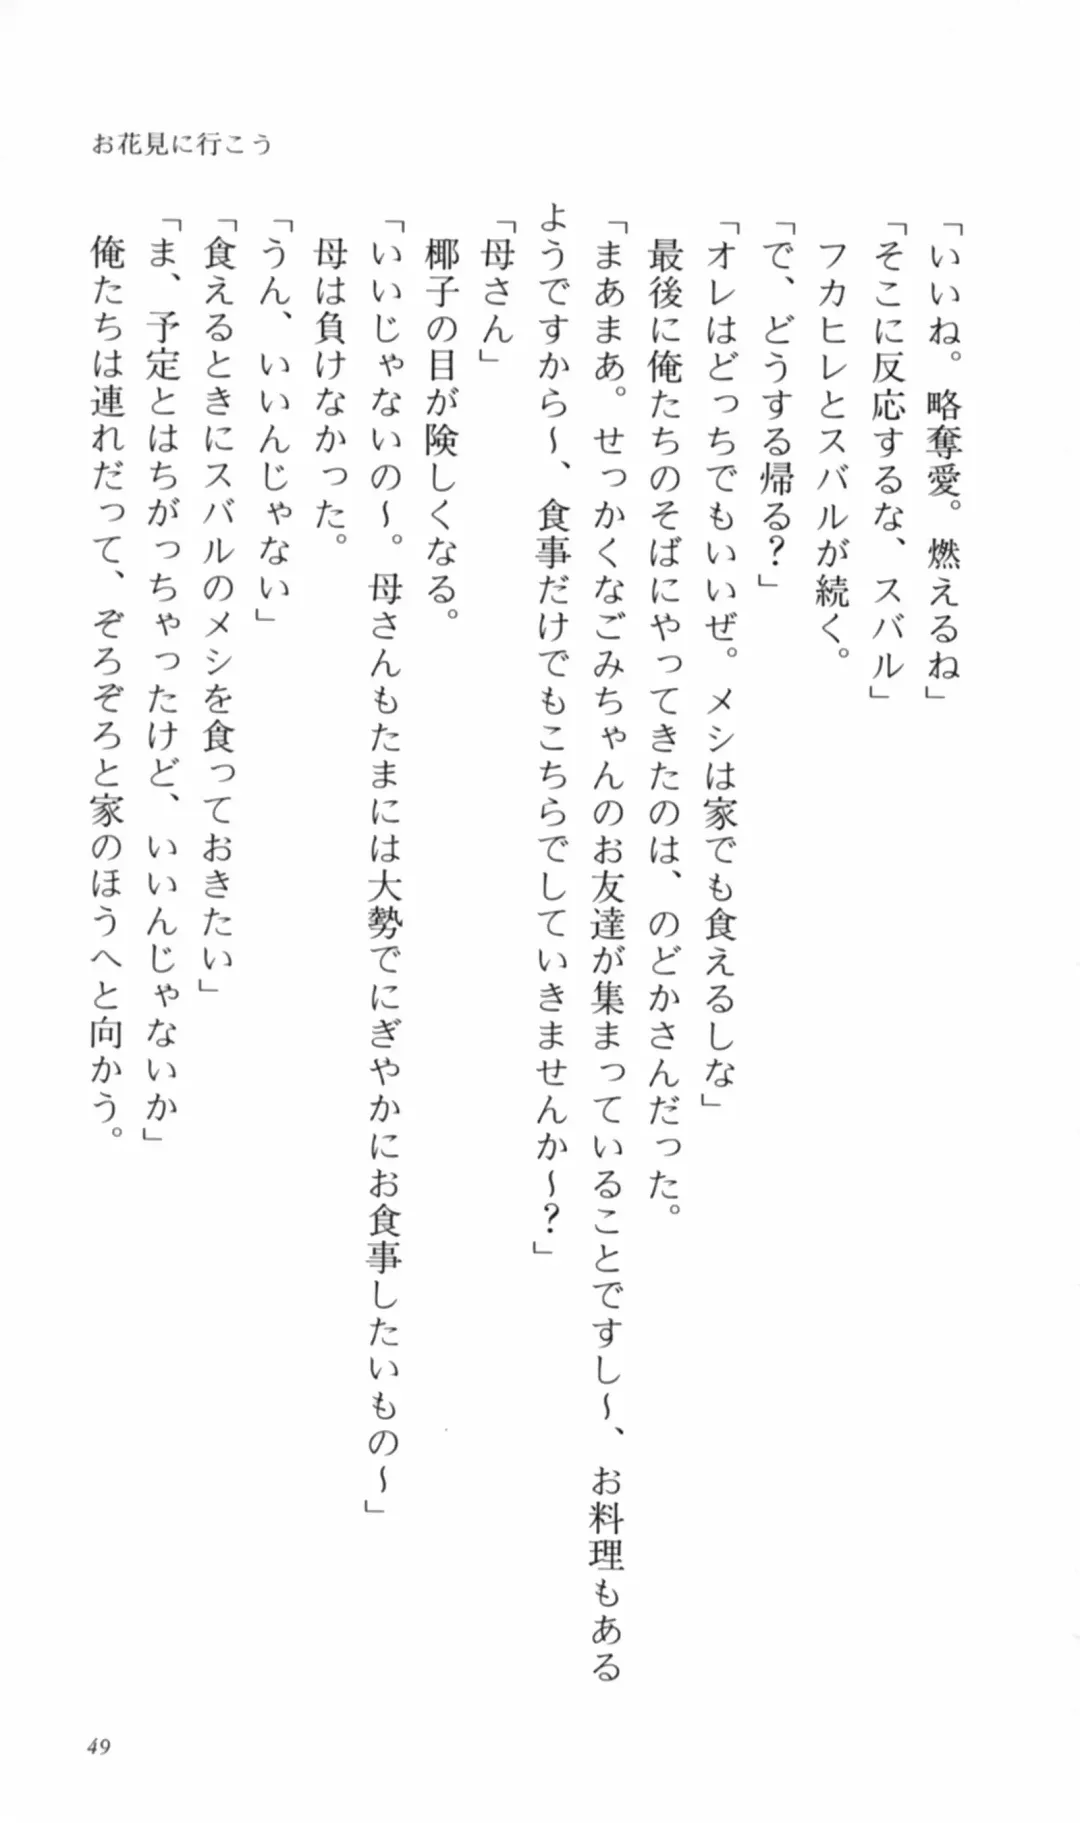 お花見に行こう
「いいね。略奪愛。燃えるね」
「そこに反応するな、スバル」
フカヒレとスバルが続く。
「で、どうする帰る？」
「オレはどっちでもいいぜ。メシは家でも食えるしな」
最後に俺たちのそばにやってきたのは、のどかさんだった。
「まあまあ。せっかくなごみちゃんのお友達が集まっていることですし〜、お料理もある
ようですから〜、食事だけでもこちらでしていきませんか〜？」
「母さん」
椰子の目が険しくなる。
「いいじゃないの〜。母さんもたまには大勢でにぎやかにお食事したいもの〜」
母は負けなかった。
「うん、いいんじゃない」
「食えるときにスバルのメシを食っておきたい」
「ま、予定とはちがっちゃったけど、いいんじゃないか」
俺たちは連れだって、ぞろぞろと家のほうへと向かう。
49